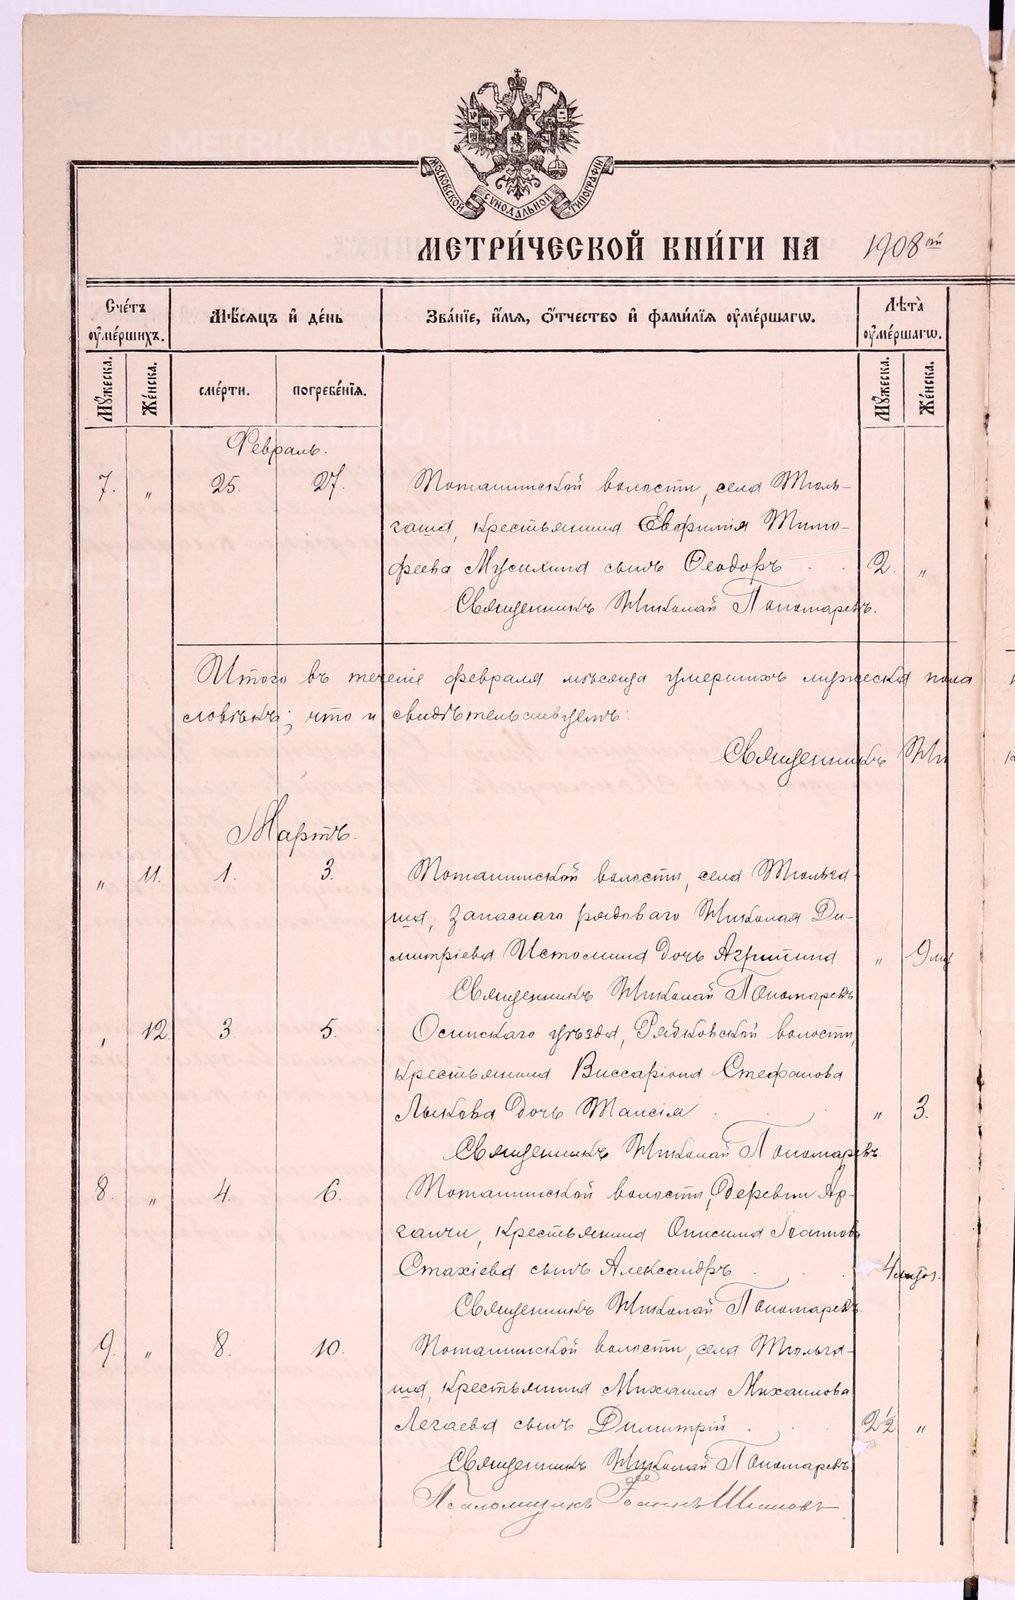 МОСКОВСКОЙ СѴНОДАЛЬНОЙ ТИПОГРАФІИ
МЕТРИ́ЧЕСКОЙ КНИ́ГИ НА 1908ый
Сче́тъ ᲂу҆ме́ршихъ.
Мѣ́сѧцъ и҆ де́нь
Зва́нїе, и҆́мѧ, ѻ҆́тчество и҆ фами́лїѧ ᲂу҆ме́ршагѡ.
Лѣ́та ᲂу҆ме́ршагѡ.
Мꙋ́жеска. Же́нска. сме́рти. погребе́нїѧ. Мꙋ́жеска. Же́нска.
Февраль.
7. " 25. 27. Поташинской волости, села Тюль-
гаша, крестьянина Евфимія Тимо-
феева Мусихина сынъ Ѳеодоръ . . 2. "
Священникъ Николай Пономаревъ.
Итого въ теченіе февраля мѣсяца умершихъ мужеска пола
словѣкъ; что и свидѣтельствуемъ:
Священникъ Ни
Мартъ.
" 11. 1. 3. Поташинской волости, села Тюльга-
ша, запаснаго рядоваго Николая Ди-
митріева Истомина дочь Агрипина " 9 мц
Священникъ Николай Пономаревъ
" 12. 3. 5. Осинскаго уѣзда, Рябковской волости,
крестьянина Виссаріона Стефанова
Лыкова дочь Таисія . . " 3.
Священникъ Николай Пономаревъ.
8. " 4. 6. Поташинской волости, деревни Ар-
гаичи, крестьянина Онисима Іоаннова
Стахіева сынъ Александръ . . 4
Священникъ Николай Пономаревъ
9. " 8. 10. Поташинской волости, села Тюльга-
ша, крестьянина Михаила Михаилова
Легаева сынъ Димитрій . . 2½ "
Священникъ Николай Пономаревъ
Псаломщикъ Іоаннъ Шишовъ
METRIKI.GASO-URAL.RU